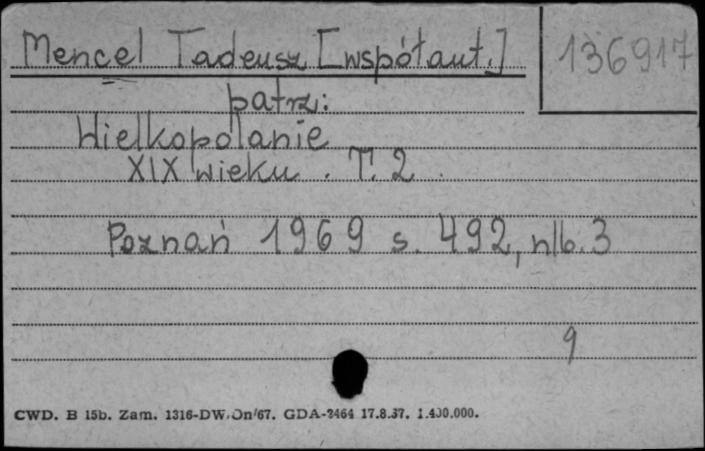 Mencel Tadeusz [współaut.]
136917
patrz:
Wielkopolanie
XIX wieku. T. 2.
Poznań 1969 s. 492, nlb. 3
9
CWD. B 15b. Zam. 1316-DW/Dn/67. GDA-2464 17.8.67. 1.400.000.